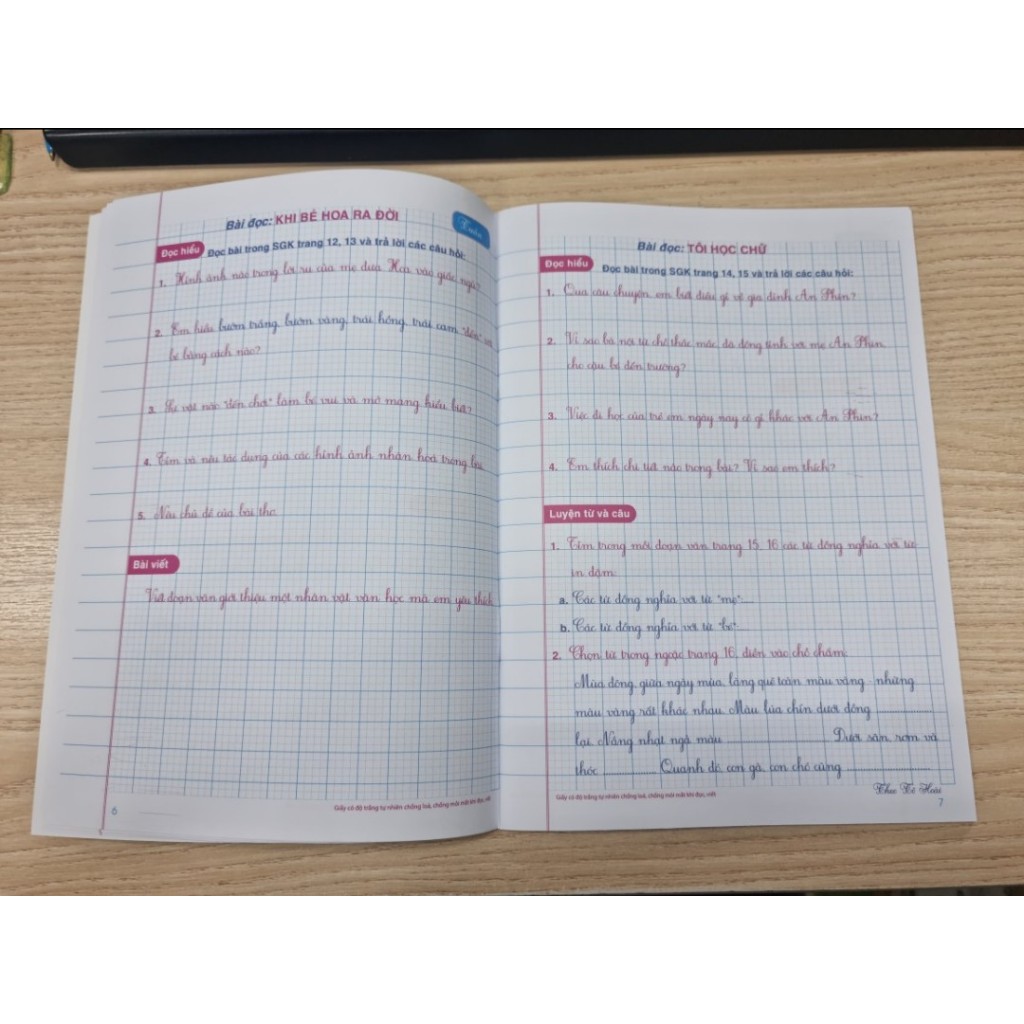 Bài đọc: KHI BÉ HOA RA ĐỜI
Tuần
Đọc hiểu Đọc bài trong SGK trang 12, 13 và trả lời các câu hỏi:
1. Hình ảnh nào trong lời ru của mẹ đưa Hoa vào giấc ngủ?
2. Em hiểu bướm trắng, bướm vàng, trái hồng, trái cam "đến" với
bé bằng cách nào?
3. Sự vật nào "đến chơi" làm bé vui và mở mang hiểu biết?
4. Tìm và nêu tác dụng của các hình ảnh nhân hoá trong bài.
5. Nêu chủ đề của bài thơ.
Bài viết
Viết đoạn văn giới thiệu một nhân vật văn học mà em yêu thích
6
Giấy có độ trắng tự nhiên chống loá, chống mỏi mắt khi đọc, viết
Bài đọc: TÔI HỌC CHỮ
Đọc hiểu Đọc bài trong SGK trang 14, 15 và trả lời các câu hỏi:
1. Qua câu chuyện, em biết điều gì về gia đình A Phin?
2. Vì sao bà nội từ chỗ thắc mắc đã đồng tình với mẹ A Phin
cho cậu bé đến trường?
3. Việc đi học của trẻ em ngày nay có gì khác với A Phin?
4. Em thích chi tiết nào trong bài? Vì sao em thích?
Luyện từ và câu
1. Tìm trong mỗi đoạn văn trang 15, 16 các từ đồng nghĩa với từ
in đậm:
a. Các từ đồng nghĩa với từ "mẹ"
b. Các từ đồng nghĩa với từ "bé"
2. Chọn từ trong ngoặc trang 16, điền vào chỗ chấm:
Mùa đông, giữa ngày mùa, làng quê toàn màu vàng - những
màu vàng rất khác nhau. Màu lúa chín dưới đồng ............
lại. Nắng nhạt ngả màu ............ Dưới sân, rơm và
thóc ............ Quanh đó, con gà, con chó cũng ............
Theo Tô Hoài
Giấy có độ trắng tự nhiên chống loá, chống mỏi mắt khi đọc, viết
7